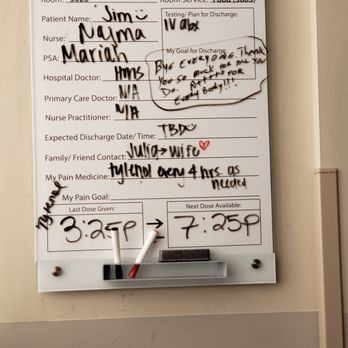 Patient Name: Jim
Testing/ Plan for Discharge:
IV abx
Nurse: Najma
PSA: Mariah
My Goal for Discharge:
BYE EVERYONE Thank
You so much for all you
Do.
Every Body!!!
Hospital Doctor: Hms
Primary Care Doctor: N/A
Nurse Practitioner: N/A
Expected Discharge Date/ Time: TBD
Family/ Friend Contact: Julia → wife
My Pain Medicine: tylenol every 4 hrs. as
needed
My Pain Goal:
Tylenol
Last Dose Given:
3:25p
→
Next Dose Available:
7:25p